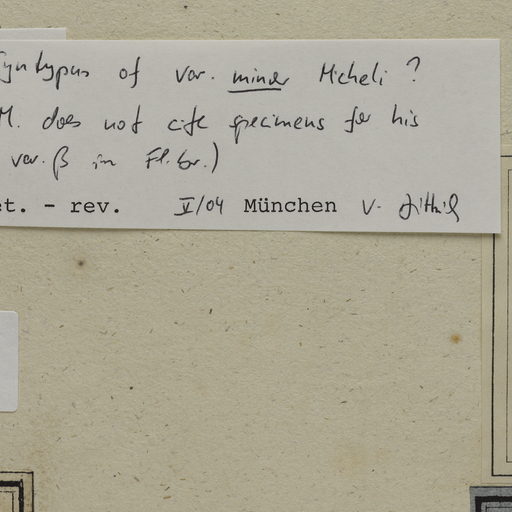 Syntypus of var. minor Micheli ?
M. does not cite specimens for his
var. β in Fl. br.)
et. - rev. V/04 München V.